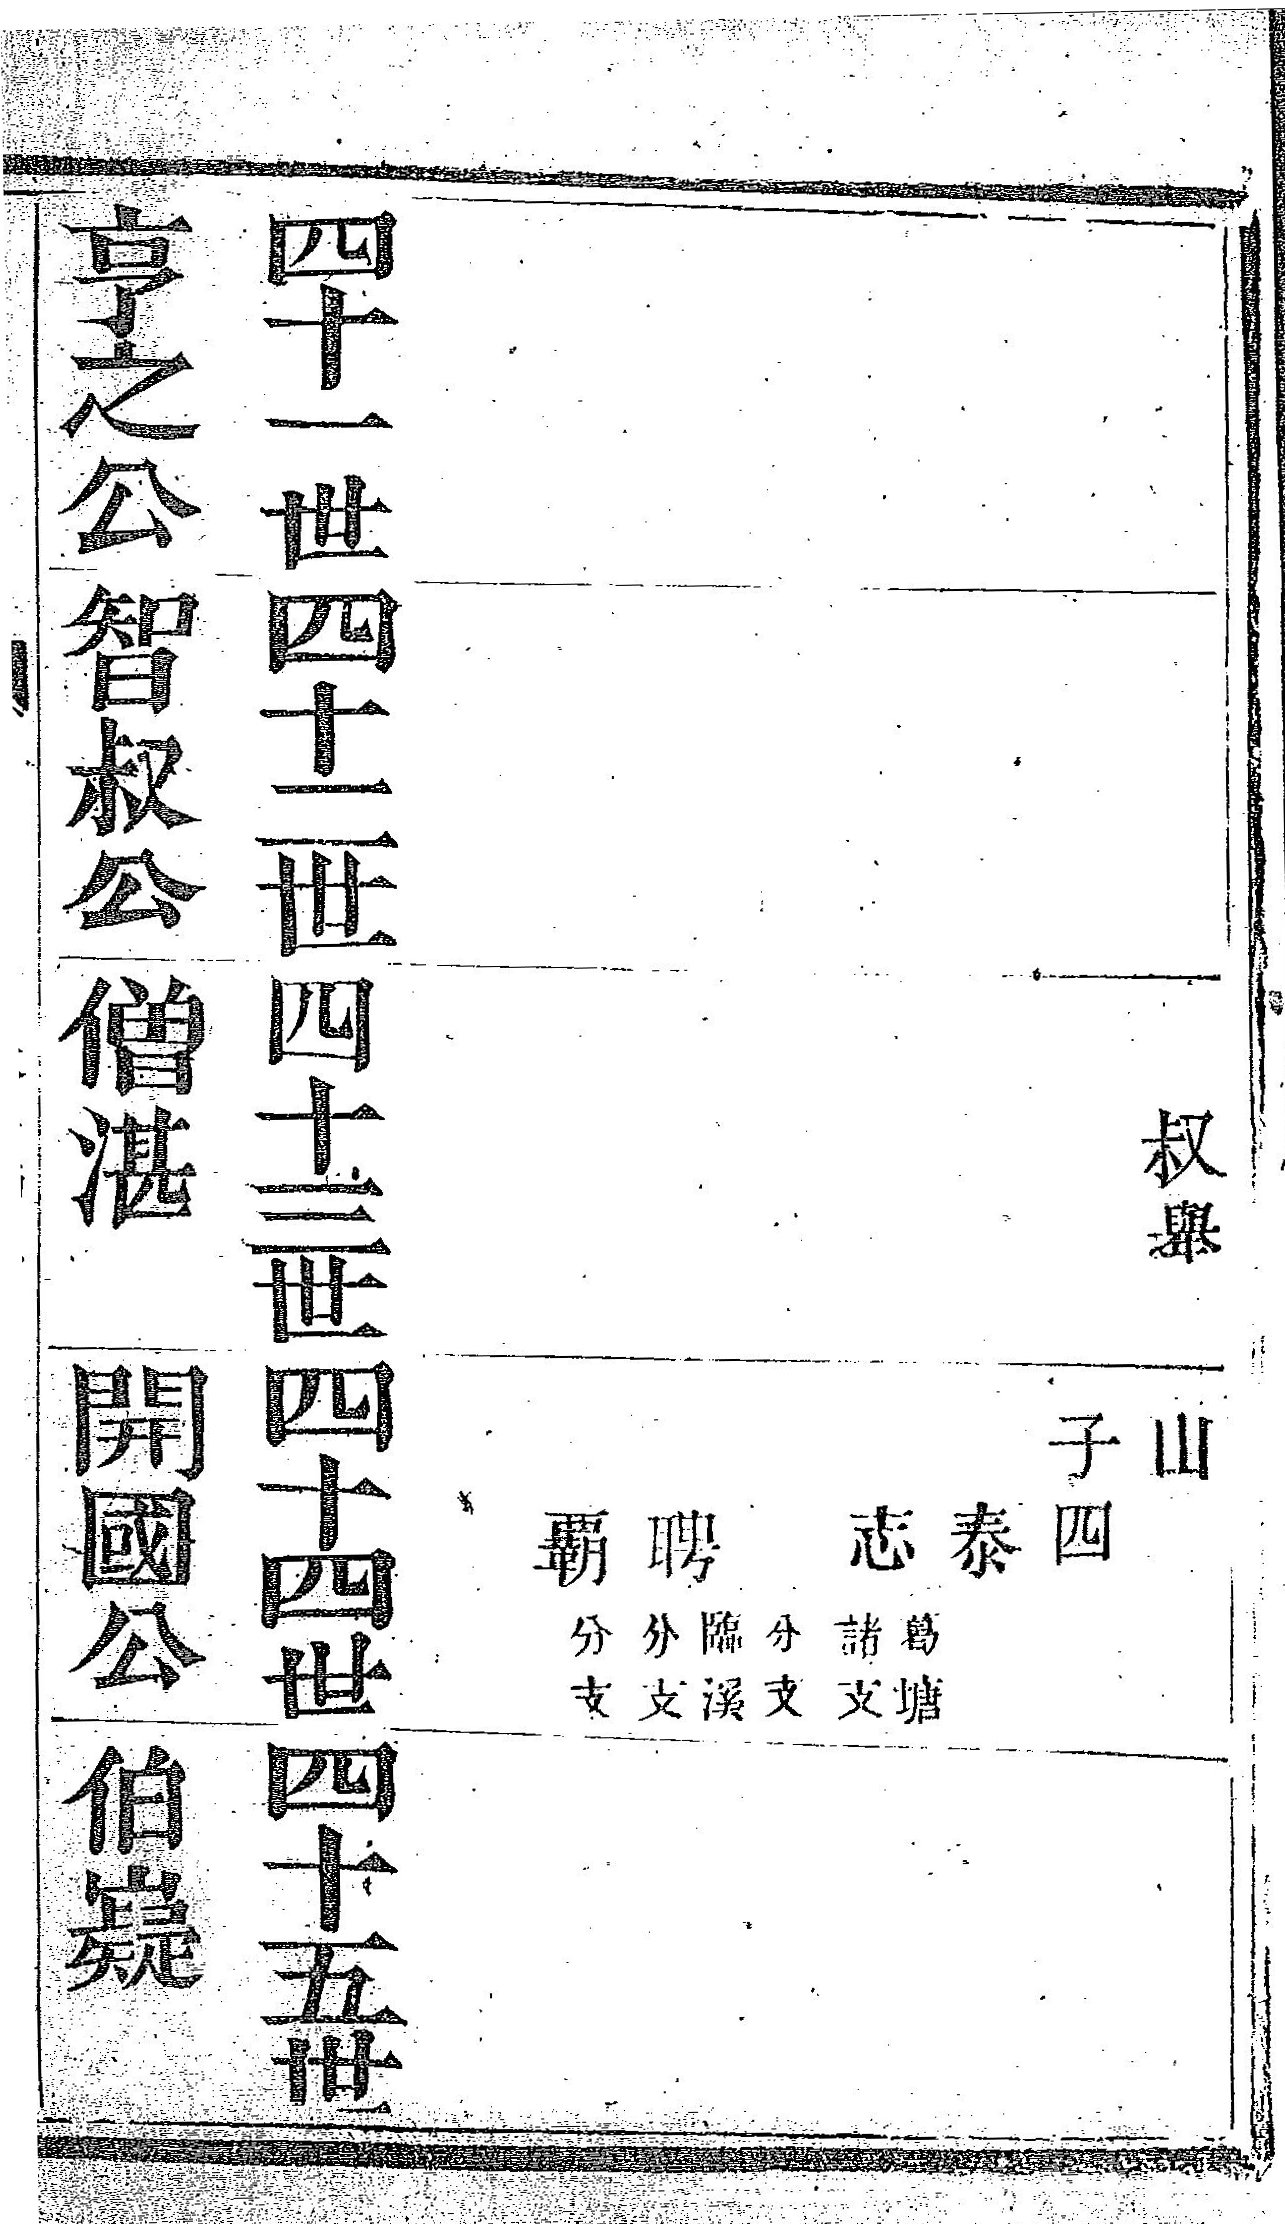 叔舉
山
子四
泰
志
葛塘
諸支
分支
聘
臨溪
分支
覇
分支
四十一世
四十二世
四十三世
四十四世
四十五世
亨之公
智叔公
僧湛
開國公
伯嶷